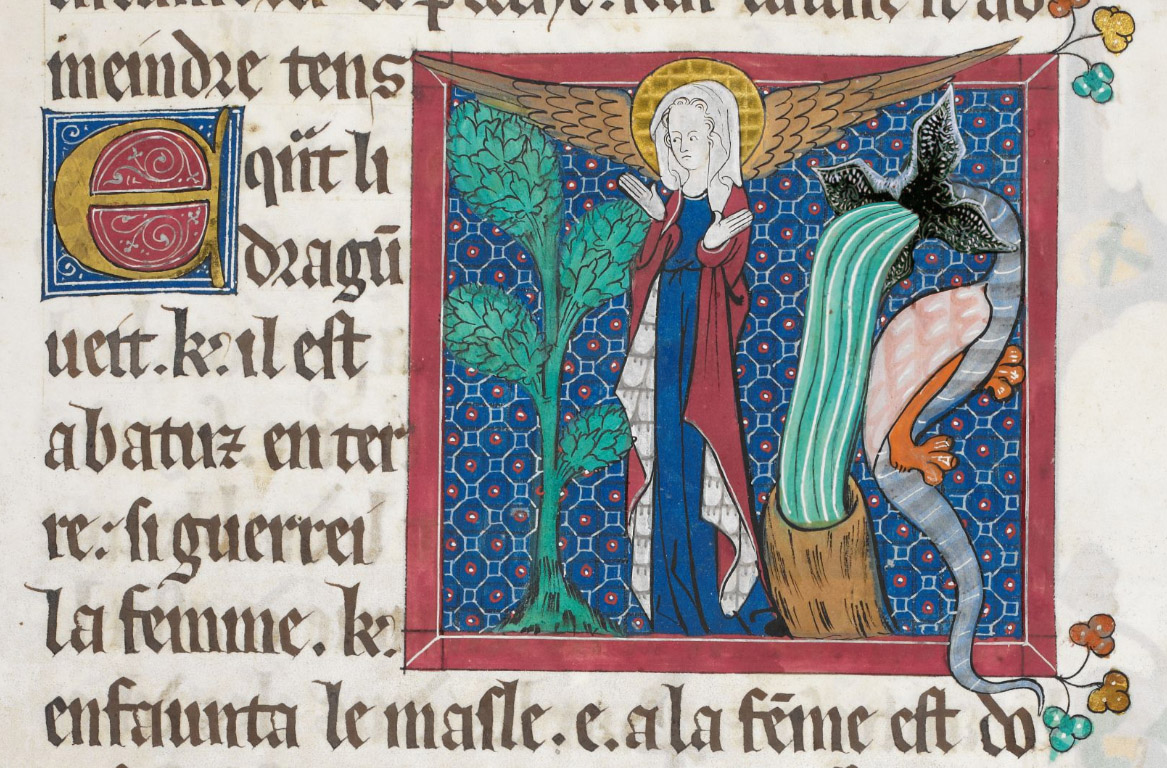 meindre tens
E qnt li
dragū
ueit. k il est
abatuz en ter
re: si guerrei
la femme. k
enfaunta le masle. e. a la fēme est do